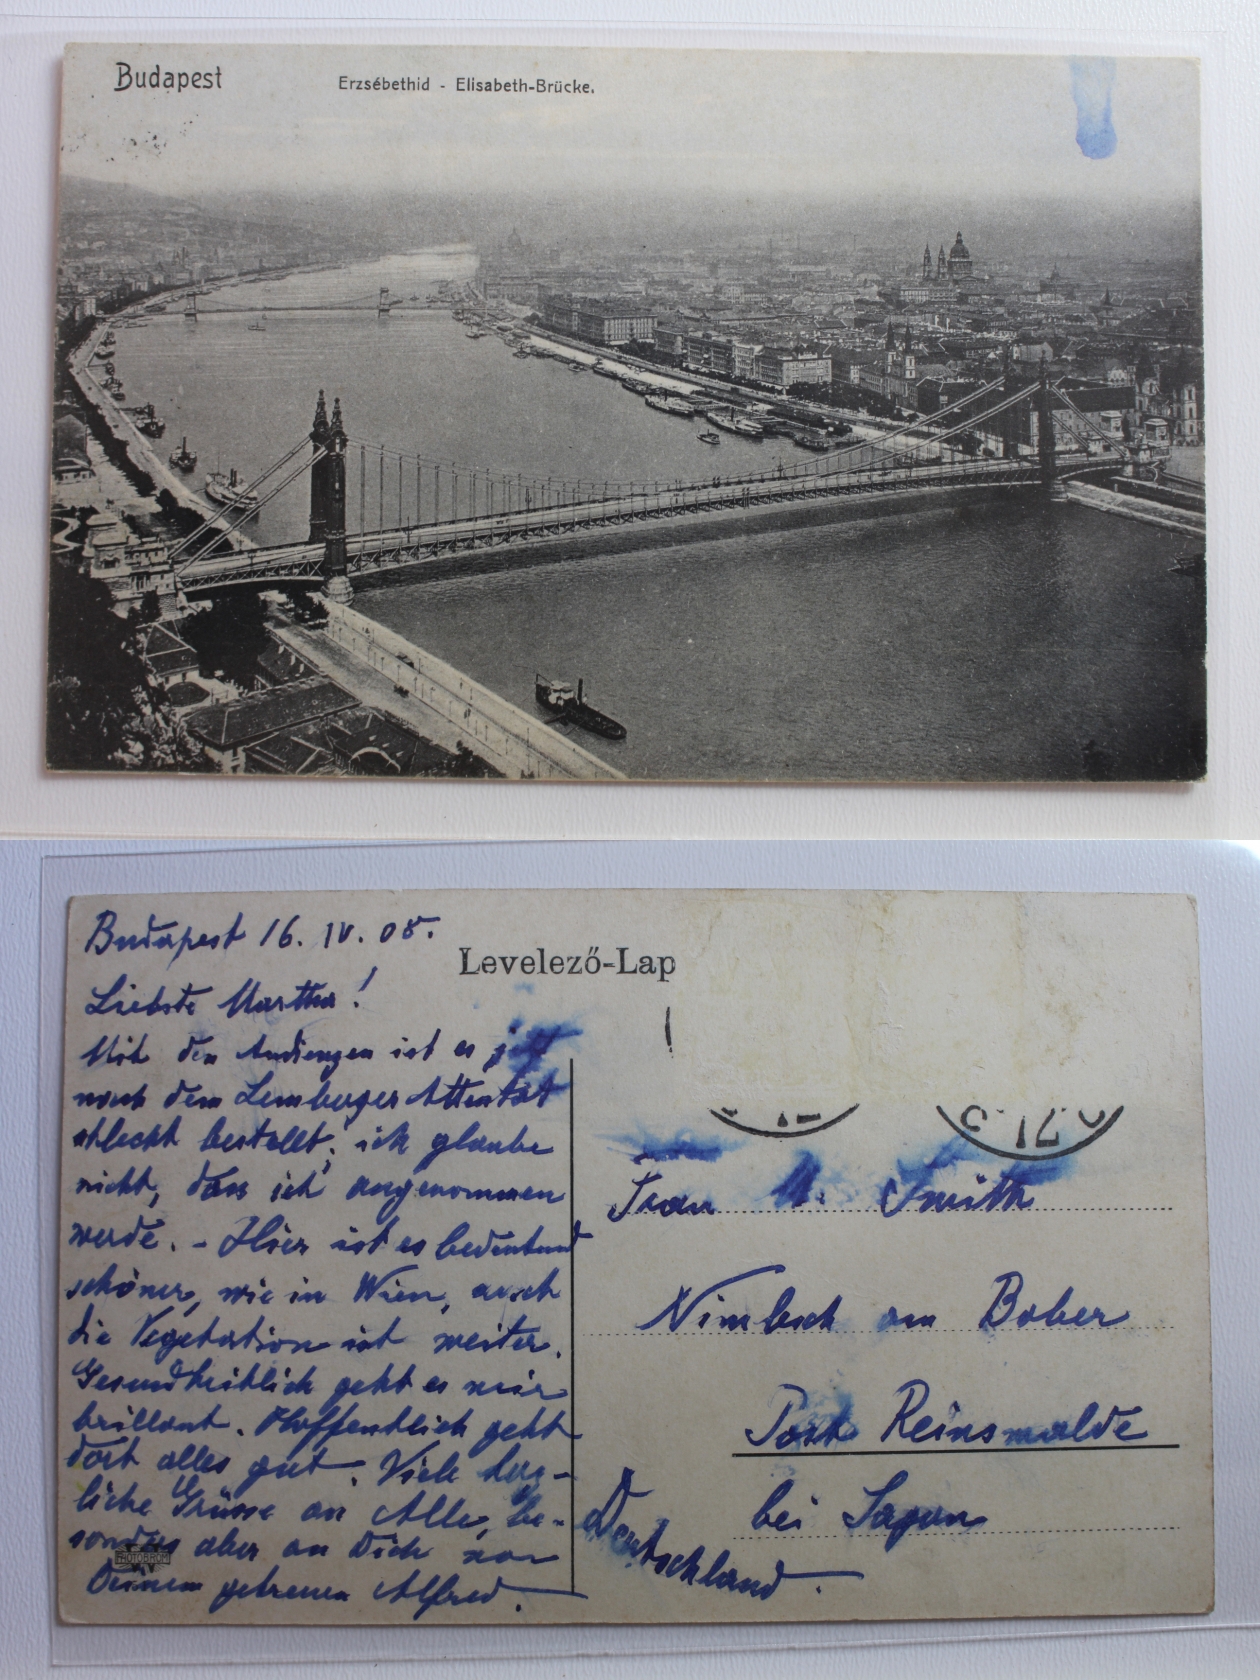 Budapest
Erzsébethid - Elisabeth-Brücke.
Budapest 16. IV. 08.
Levelező-Lap
Liebste Martha!
Mit den Audienzen ist es jetzt
nach dem Lemberger Attentat
schlecht bestellt; ich glaube
nicht, dass ich angenommen
werde. - Hier ist es bedeutend
schöner, wie in Wien, auch
die Vegetation ist weiter.
Gesundheitlich geht es mir
brillant. Hoffentlich geht
dort alles gut. Viele herz-
liche Grüsse an Alle, be-
sonders aber an Dich von
Deinem getreuen Alfred.
PHOTOBROM
Frau M. Smith
Nimbsch am Bober
Post Reinswalde
bei Sagan
Deutschland.